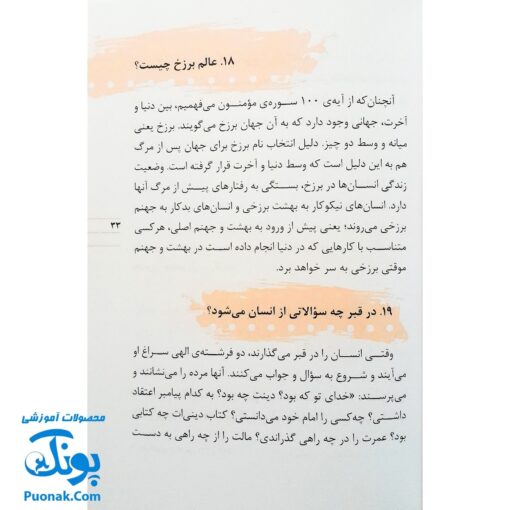 ۱۸. عالم برزخ چیست؟
آنچنان‌که از آیه‌ی ۱۰۰ سوره‌ی مؤمنون می‌فهمیم، بین دنیا و
آخرت، جهانی وجود دارد که به آن جهان برزخ می‌گویند. برزخ یعنی
میانه و وسط دو چیز. دلیل انتخاب نام برزخ برای جهان پس از مرگ
هم به این دلیل است که وسط دنیا و آخرت قرار گرفته است. وضعیت
زندگی انسان‌ها در برزخ، بستگی به رفتارهای پیش از مرگ آنها
دارد. انسان‌های نیکوکار به بهشت برزخی و انسان‌های بدکار به جهنم
برزخی می‌روند؛ یعنی پیش از ورود به بهشت و جهنم اصلی، هرکسی
متناسب با کارهایی که در دنیا انجام داده است در بهشت و جهنم
موقتی برزخی به سر خواهد برد.
۳۳
۱۹. در قبر چه سؤالاتی از انسان می‌شود؟
وقتی انسان را در قبر می‌گذارند، دو فرشته‌ی الهی سراغ او
می‌آیند و شروع به سؤال و جواب می‌کنند. آنها مرده را می‌نشانند و
می‌پرسند: «خدای تو که بود؟ دینت چه بود؟ به کدام پیامبر اعتقاد
داشتی؟ چه‌کسی را امام خود می‌دانستی؟ کتاب دینی‌ات چه کتابی
بود؟ عمرت را در چه راهی گذراندی؟ مالت را از چه راهی به دست
محصولات آموزشی
پونک
Puonak.Com